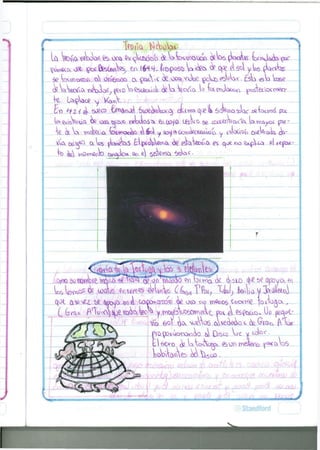 Teoría Nebular
La teoría nebular es una explicación de la formación de los planetas formulada por
primera vez por Descartes, en 1644. Propuso la idea de que el sol y los planetas
se formaron al unísono a partir de una nube de polvo estelar. Esta es la base
de la teoría nebular, pero la esencia de la teoría la formularon posteriormen-
te Laplace y Kant.
En 1721 el sueco Emanuel Swedenborg afirma que el sistema solar se formó por
la existencia de una gran nebulosa en cuyo centro se concentraría la mayor par-
te de la materia formando el Sol y cuya condensación y rotación acelerada da-
ría origen a los planetas. El problema de esta teoría es que no explica el repar-
to del momento angular en el sistema solar.
Teoría de la tortuga y los 4 elefantes
Como su nombre indica se trata de un mundo en forma de disco que se apoya en
los lomos de cuatro enormes elefantes (Gran T'Phon, Tubul, Berilia y Jerakeen)
que a su vez se apoyan en el caparazón de una no menos enorme tortuga,
(Gran A'Tuin) que nada lenta y majestuosamente por el espacio. Un peque-
ño sol da vueltas alrededor de Gran A'Tuin
proporcionando al Disco luz y calor.
El sexo de la tortuga es un misterio para los
habitantes del Disco.
Standford